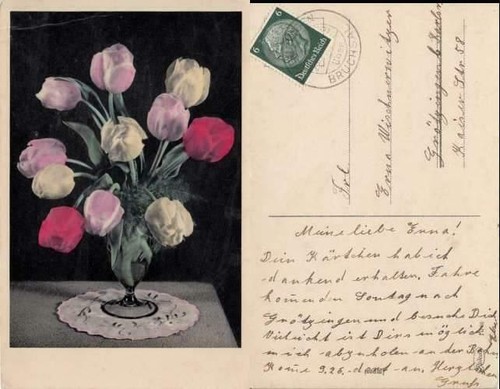 6
6
Deutsches Reich
BRUCHSA
Frl
Erna Wischnewitzer
Grötzingen b Berlin
Kaiser Str 58
Meine liebe Erna!
Dein Kärtchen hab ich
dankend erhalten. Fahre
kommenden Sontag nach
Grötzingen und besuche Dich
Vieleicht ist Dirs möglich
mich abzuholen an der Bahn
Kome 9.26. dort an. Herzlichen
Gruß